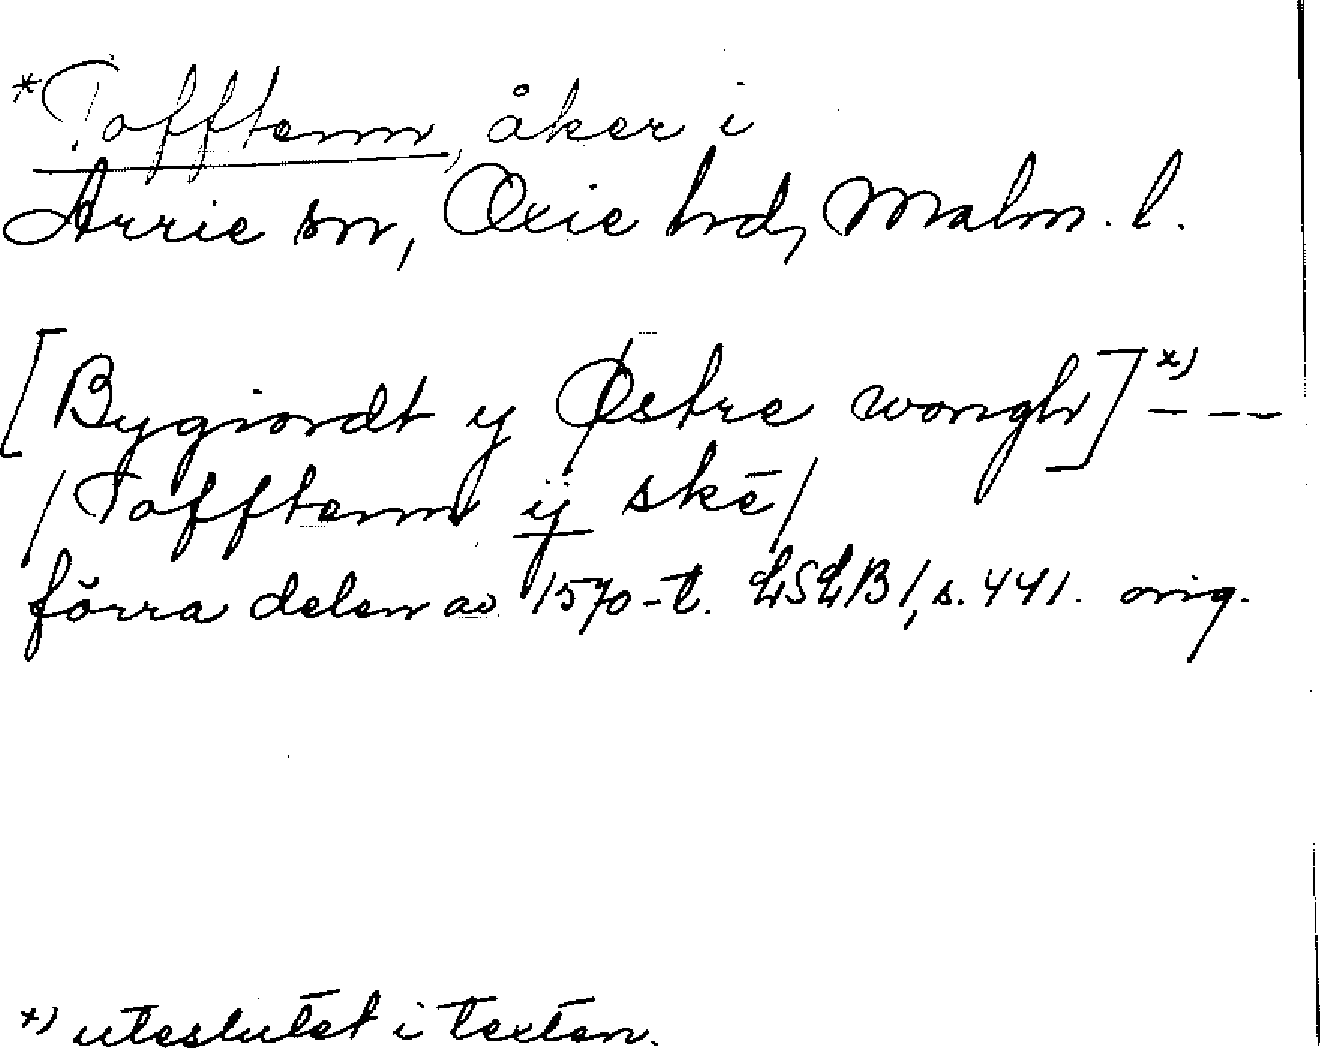 *Tofftenn, åker i
Arrie sn, Oxie hd, Malm. l.
[Bygiordt y Østre wongh]*) - - -
/Tofftenn ÿ ske/
förra delen av 1570-t. LSLB 1, s. 441. orig.
*) uteslutet i texten.